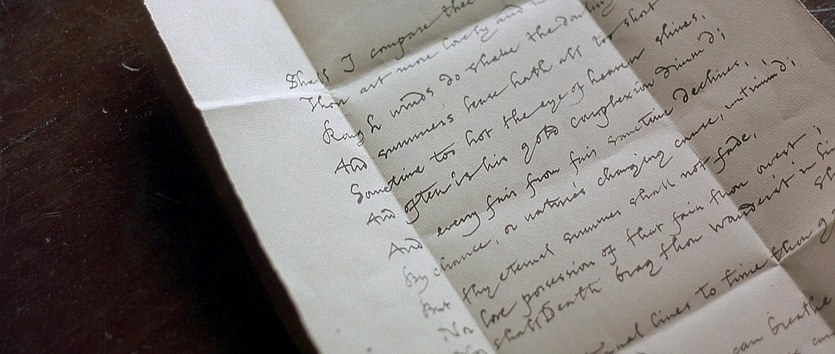 Shall I compare thee
Thou art more lovely and
Rough winds do shake the darling
And summers lease hath all too short
Sometime too hot the eye of heaven shines,
And often is his gold complexion dimm'd;
And every fair from fair sometime declines,
By chance, or nature's changing course, untrimm'd;
But thy eternal summer shall not fade,
Nor lose possession of that fair thou owest;
Nor shall Death brag thou wander'st in
lines to time thou
can breathe